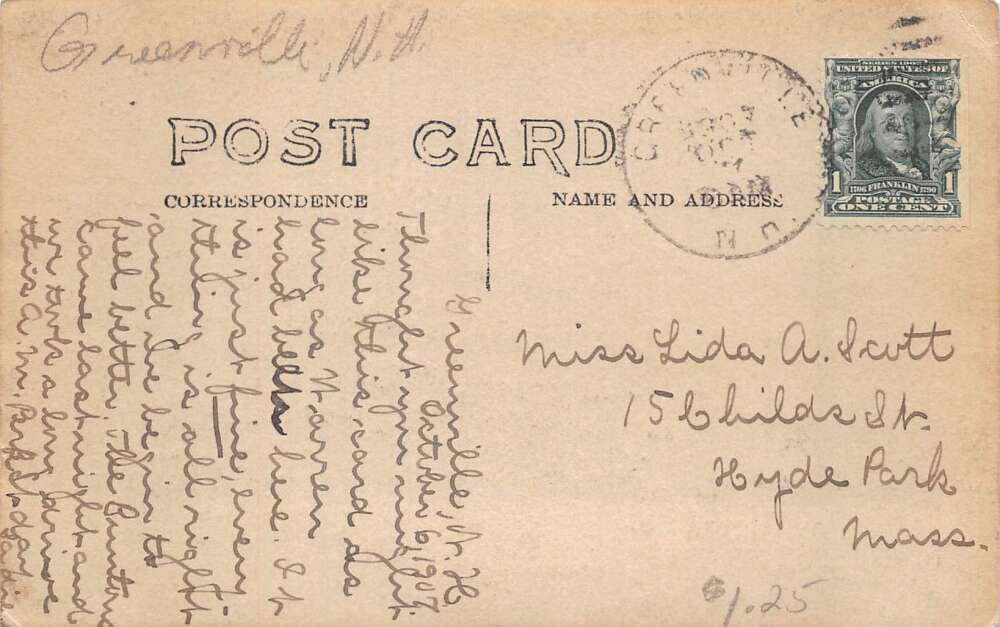 Greenville, N.H.
POST CARD
CORRESPONDENCE
NAME AND ADDRESS
GREENVILLE
N.H.
SERIES 1902
UNITED STATES OF
AMERICA
1 1
1706 FRANKLIN 1790
POSTAGE
ONE CENT
Greenville, N. H.
October 6, 1907.
Thought you might
like this card as
long as Warren
had been here. It
is just fine, every
thin', is all right
and we begin to
feel better. The
came last night and
we took a long drive
this A.M.
Sadie
Miss Lida A. Scott
15 Childs St.
Hyde Park
Mass.
$1.25